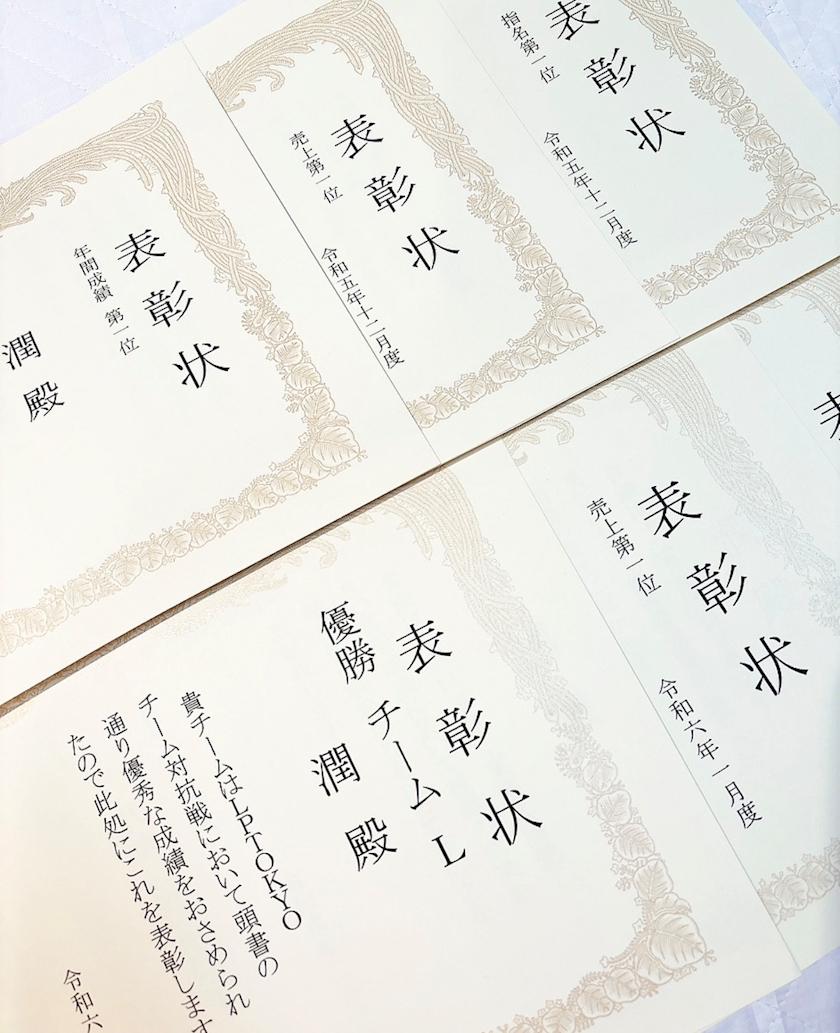 表彰状
指名第一位
令和五年十二月度
表彰状
売上第一位
令和五年十二月度
表彰状
年間成績 第一位
潤 殿
表彰状
売上第一位
令和六年一月度
表彰状
優勝 チームL
潤 殿
貴チームはLPTOKYO
チーム対抗戦において頭書の
通り優秀な成績をおさめられ
たので此処にこれを表彰します
令和六